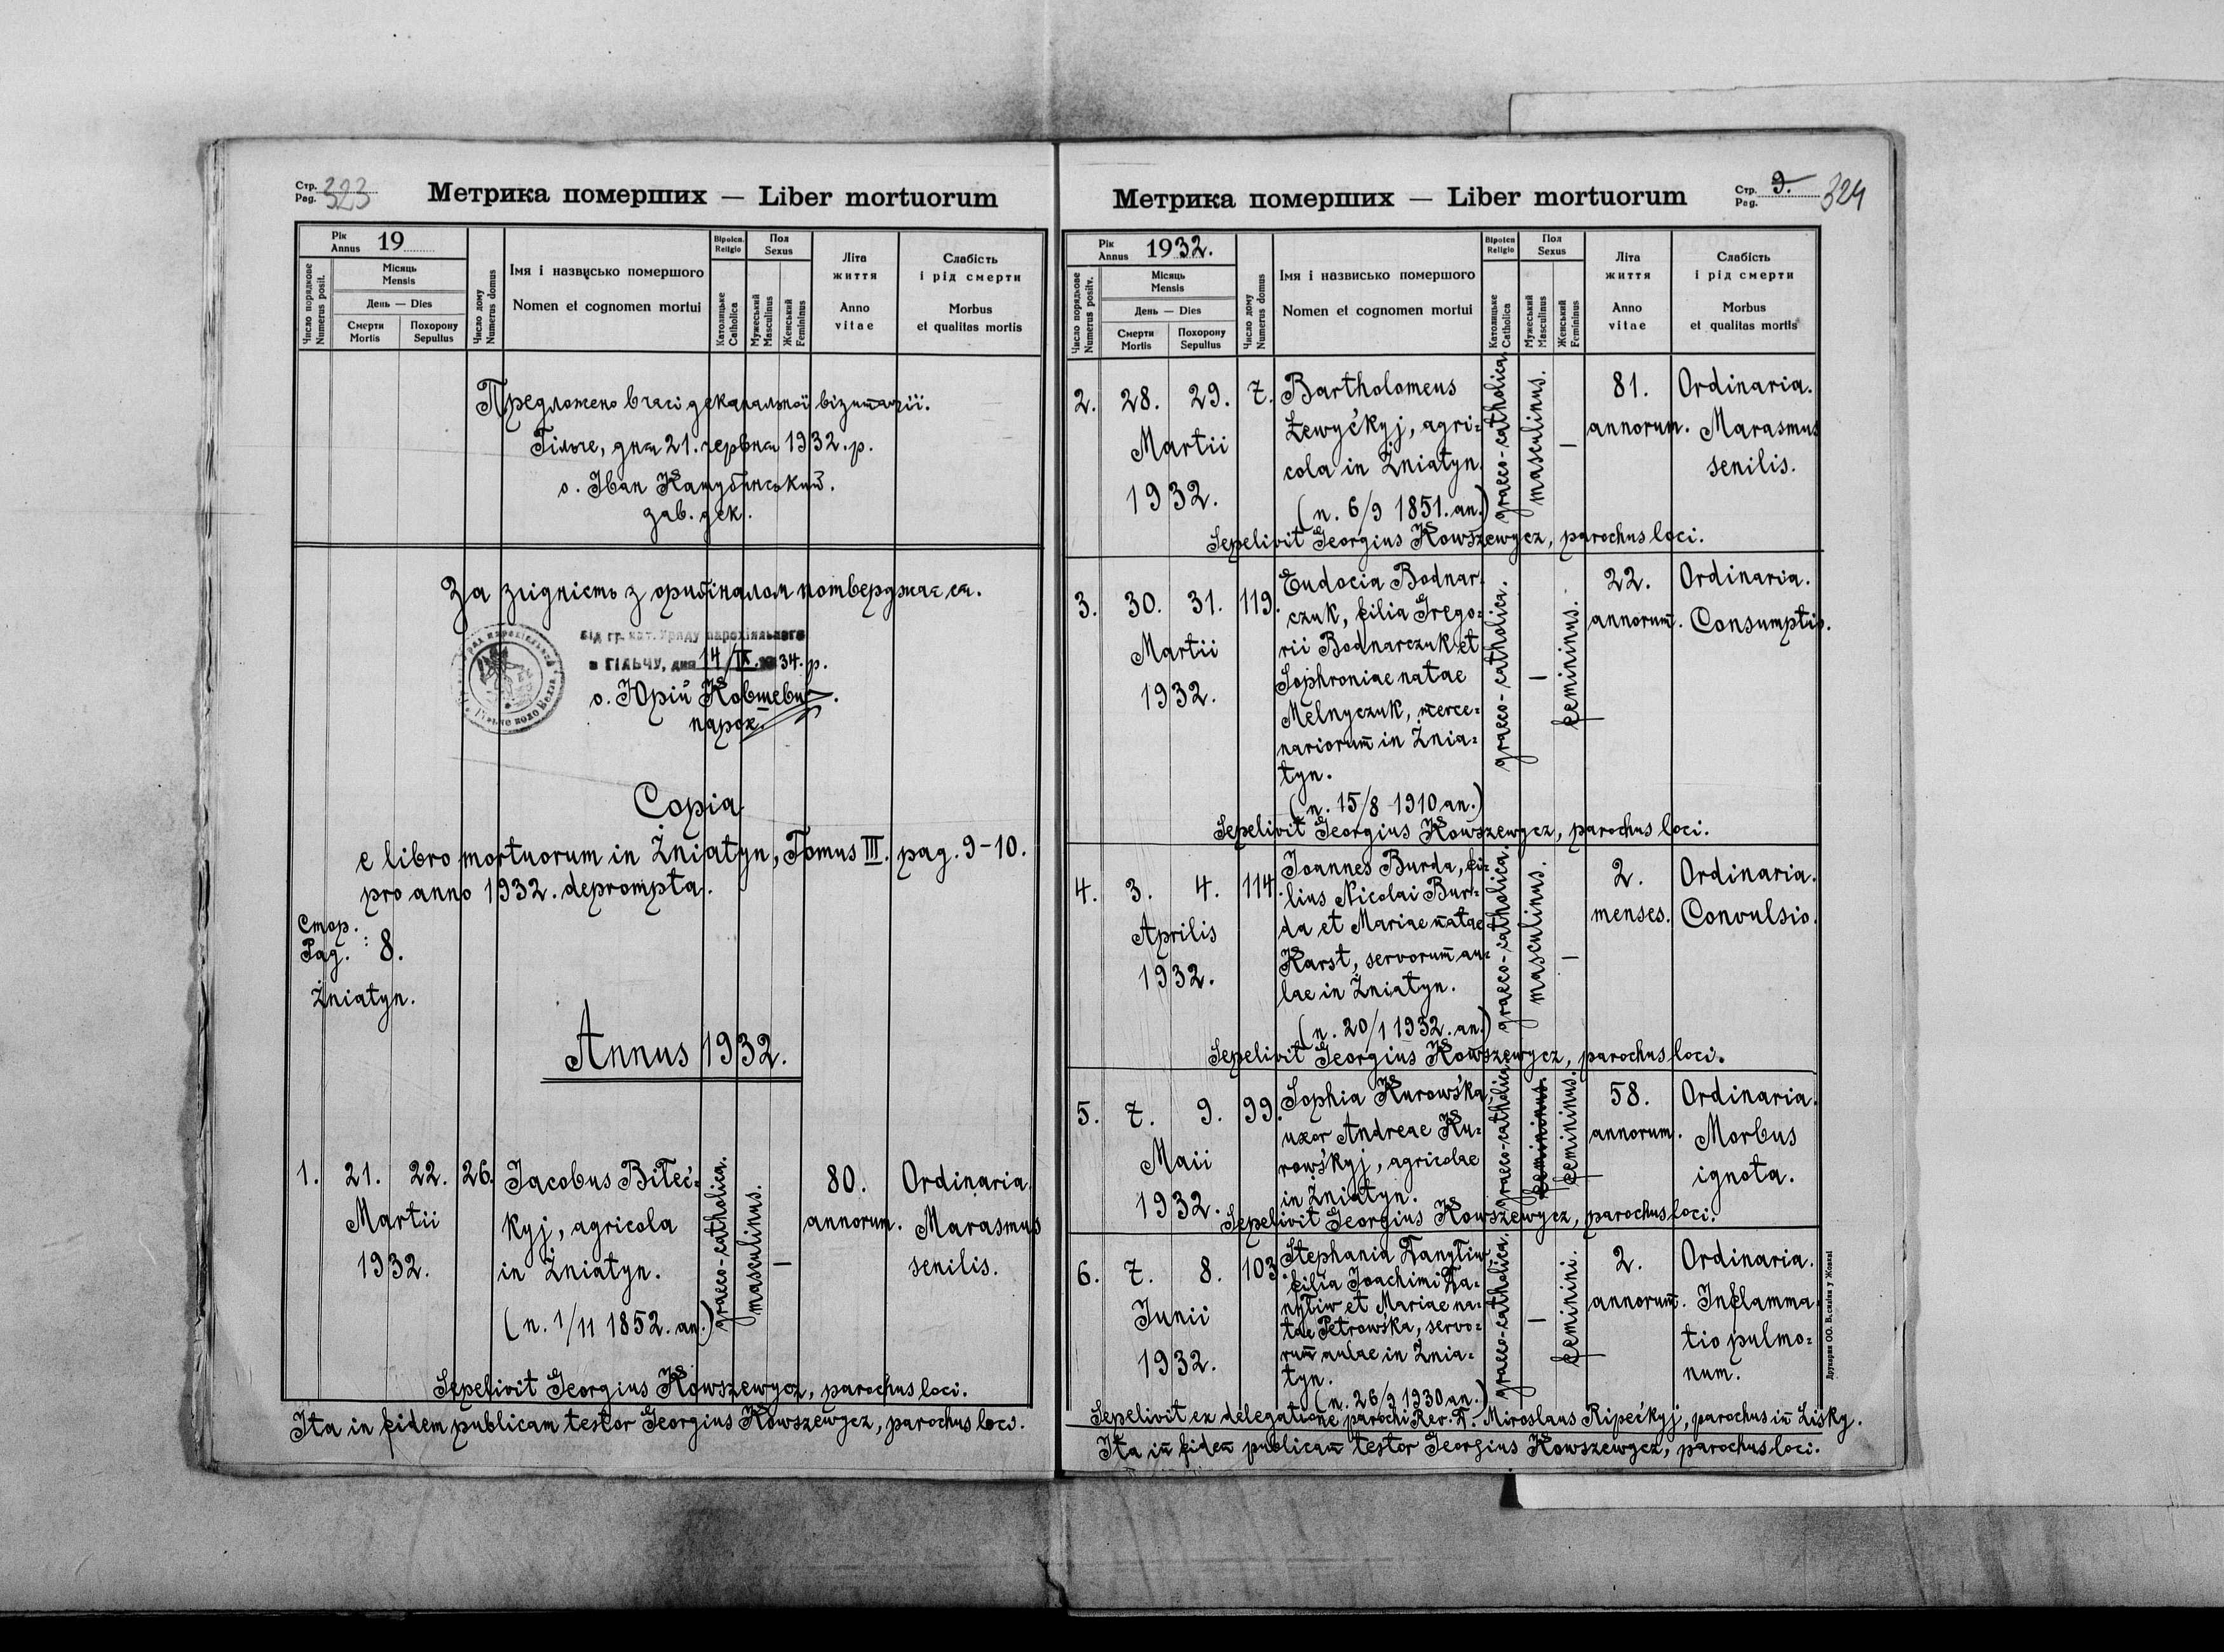 Стр.
Pag. 323
Метрика померших — Liber mortuorum
Рік
Annus 19
Число порядкове
Numerus posit.
Місяць
Mensis
День — Dies
Смерти
Mortis
Похорону
Sepultus
Число дому
Numerus domus
Імя і назвисько помершого
Nomen et cognomen mortui
Віроісп.
Religio
Католицьке
Catholica
Пол
Sexus
Мужеський
Masculinus
Женський
Femininus
Літа
життя
Anno
vitae
Слабість
і рід смерти
Morbus
et qualitas mortis
Предложено в часі деканальної візитації.
Гільче, дня 21. червня 1932. р.
о. Іван
зав. дек.
За згідність з оригіналом потверджаєся.
від гр. кат. Уряду парохіяльного
в ГІЛЬЧУ, дня 14/IX 1934. р.
о. Юрій Ковшевич.
парох.
Copia
e libro mortuorum in Żniatyn, Tomus III. pag. 9-10.
pro anno 1932. deprompta.
Стор.
Pag. : 8.
Żniatyn.
Annus 1932.
1. 21. 22. 26. Jacobus Biłeć- graeco-catholica. masculinus. — 80. Ordinaria.
Martii kyj, agricola annorum. Marasmus
1932. in Żniatyn. senilis.
(n. 1/11 1852. an.)
Sepelivit Georgius Kowszewycz, parochus loci.
Ita in fidem publicam testor Georgius Kowszewycz, parochus loci.
Метрика померших — Liber mortuorum
Стр.
Pag. 9. 324
Рік
Annus 1932.
Число порядкове
Numerus positv.
Місяць
Mensis
День — Dies
Смерти
Mortis
Похорону
Sepultus
Число дому
Numerus domus
Імя і назвисько помершого
Nomen et cognomen mortui
Віроісп
Religio
Католицьке
Catholica
Пол
Sexus
Мужеський
Masculinus
Женський
Femininus
Літа
життя
Anno
vitae
Слабість
і рід смерти
Morbus
et qualitas mortis
2. 28. 29. 7. Bartholomeus graeco-catholica. masculinus. — 81. Ordinaria.
Martii Łewyćkyj, agri- annorum. Marasmus
1932. cola in Żniatyn. senilis.
(n. 6/9 1851. an.)
Sepelivit Georgius Kowszewycz, parochus loci.
3. 30. 31. 119. Eudocia Bodnar- graeco-catholica. — femininus. 22. Ordinaria.
czuk, filia Grego- annorum. Consumptio.
Martii rii Bodnarczuk et
1932. Sophroniae natae
Melnyczuk, merce-
nariorum in Żnia-
tyn.
(n. 15/8 1910 an.)
Sepelivit Georgius Kowszewycz, parochus loci.
4. 3. 4. 114. Joannes Burda, fi- graeco-catholica. masculinus. — 2. Ordinaria.
lius Nicolai Bur- menses. Convulsio.
Aprilis da et Mariae natae
1932. Karst, servorum au-
lae in Żniatyn.
(n. 20/1 1932. an.)
Sepelivit Georgius Kowszewycz, parochus loci.
5. 7. 9. 99. Sophia Kurowśka, graeco-catholica. femininus. femininus. 58. Ordinaria.
uxor Andreae Ku- annorum. Morbus
Maii rowśkyj, agricolae ignota.
1932. in Żniatyn.
Sepelivit Georgius Kowszewycz, parochus loci.
6. 7. 8. 103. Stephania Danyliw graeco-catholica. — feminini. 2. Ordinaria.
filia Joachimi Da- annorum. Inflamma-
Junii nyliw et Mariae na- tio pulmo-
1932. tae Petrowśka, servo- num.
rum aulae in Żnia-
tyn.
(n. 26/9 1930 an.)
Sepelivit ex delegatione parochi Rev. D. Miroslaus Ripećkyj, parochus in Lisky.
Ita in fidem publicam testor Georgius Kowszewycz, parochus loci.
Друкарня ОО. Василіян у Жовкві